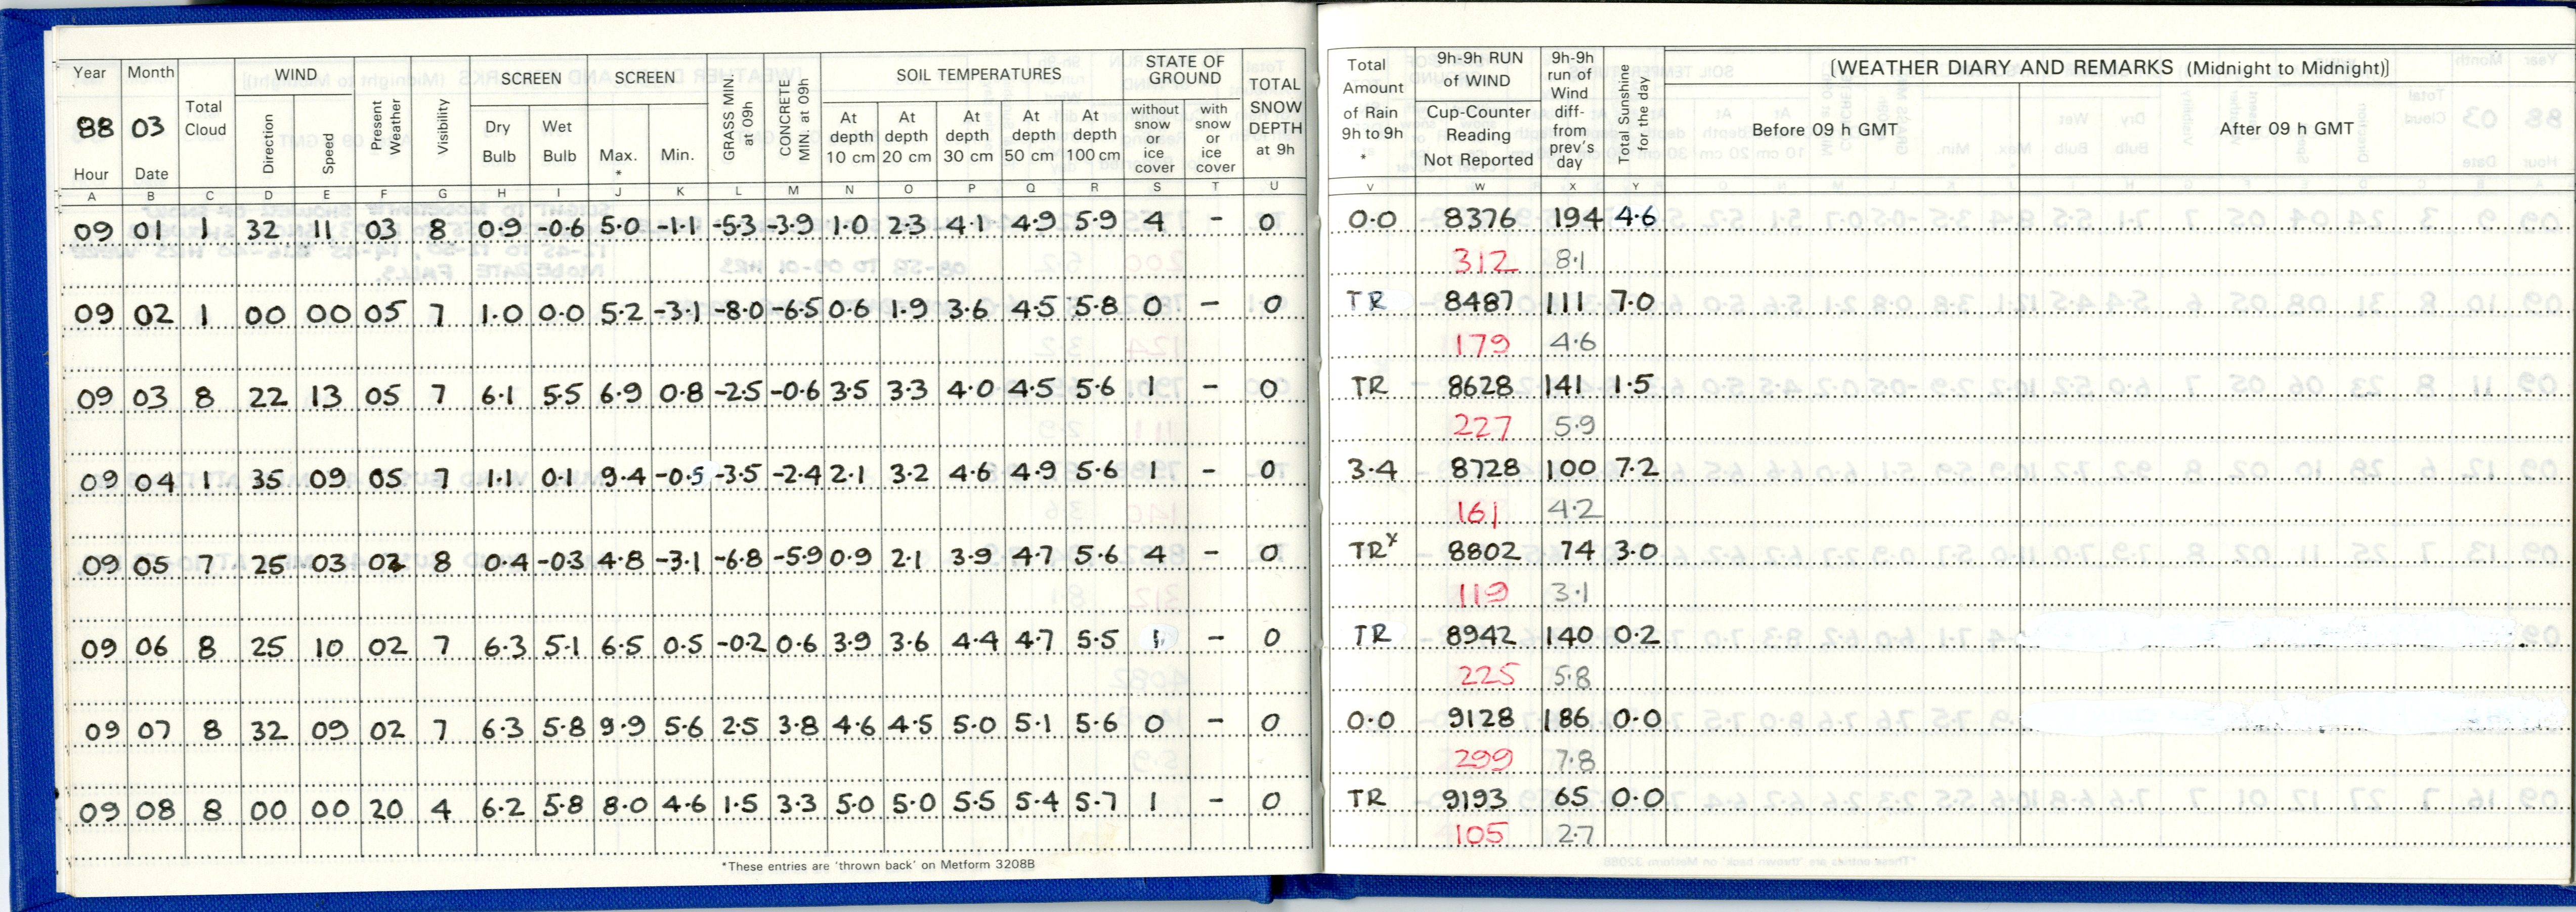 Year Month Total Cloud WIND Present Weather Visibility SCREEN SCREEN GRASS MIN at 09h CONCRETE MIN. at 09h SOIL TEMPERATURES STATE OF GROUND TOTAL SNOW DEPTH at 9h Total Amount of Rain 9h to 9h * 9h-9h RUN of WIND 9h-9h run of Wind diff- from prev's day Total Sunshine for the day [WEATHER DIARY AND REMARKS (Midnight to Midnight)]
88 03 Direction Speed Dry Bulb Wet Bulb Max. * Min. At depth 10 cm At depth 20 cm At depth 30 cm At depth 50 cm At depth 100 cm without snow or ice cover with snow or ice cover Cup-Counter Reading Not Reported Before 09 h GMT After 09 h GMT
Hour Date
A B C D E F G H I J K L M N O P Q R S T U V W X Y
09 01 1 32 11 03 8 0.9 -0.6 5.0 -1.1 -5.3 -3.9 1.0 2.3 4.1 4.9 5.9 4 - 0 0.0 8376 194 4.6
312 8.1
09 02 1 00 00 05 7 1.0 0.0 5.2 -3.1 -8.0 -6.5 0.6 1.9 3.6 4.5 5.8 0 - 0 TR 8487 111 7.0
179 4.6
09 03 8 22 13 05 7 6.1 5.5 6.9 0.8 -2.5 -0.6 3.5 3.3 4.0 4.5 5.6 1 - 0 TR 8628 141 1.5
227 5.9
09 04 1 35 09 05 7 1.1 0.1 9.4 -0.5 -3.5 -2.4 2.1 3.2 4.6 4.9 5.6 1 - 0 3.4 8728 100 7.2
161 4.2
09 05 7 25 03 02 8 0.4 -0.3 4.8 -3.1 -6.8 -5.9 0.9 2.1 3.9 4.7 5.6 4 - 0 TR* 8802 74 3.0
119 3.1
09 06 8 25 10 02 7 6.3 5.1 6.5 0.5 -0.2 0.6 3.9 3.6 4.4 4.7 5.5 1 - 0 TR 8942 140 0.2
225 5.8
09 07 8 32 09 02 7 6.3 5.8 9.9 5.6 2.5 3.8 4.6 4.5 5.0 5.1 5.6 0 - 0 0.0 9128 186 0.0
299 7.8
09 08 8 00 00 20 4 6.2 5.8 8.0 4.6 1.5 3.3 5.0 5.0 5.5 5.4 5.7 1 - 0 TR 9193 65 0.0
105 2.7
*These entries are 'thrown back' on Metform 3208B